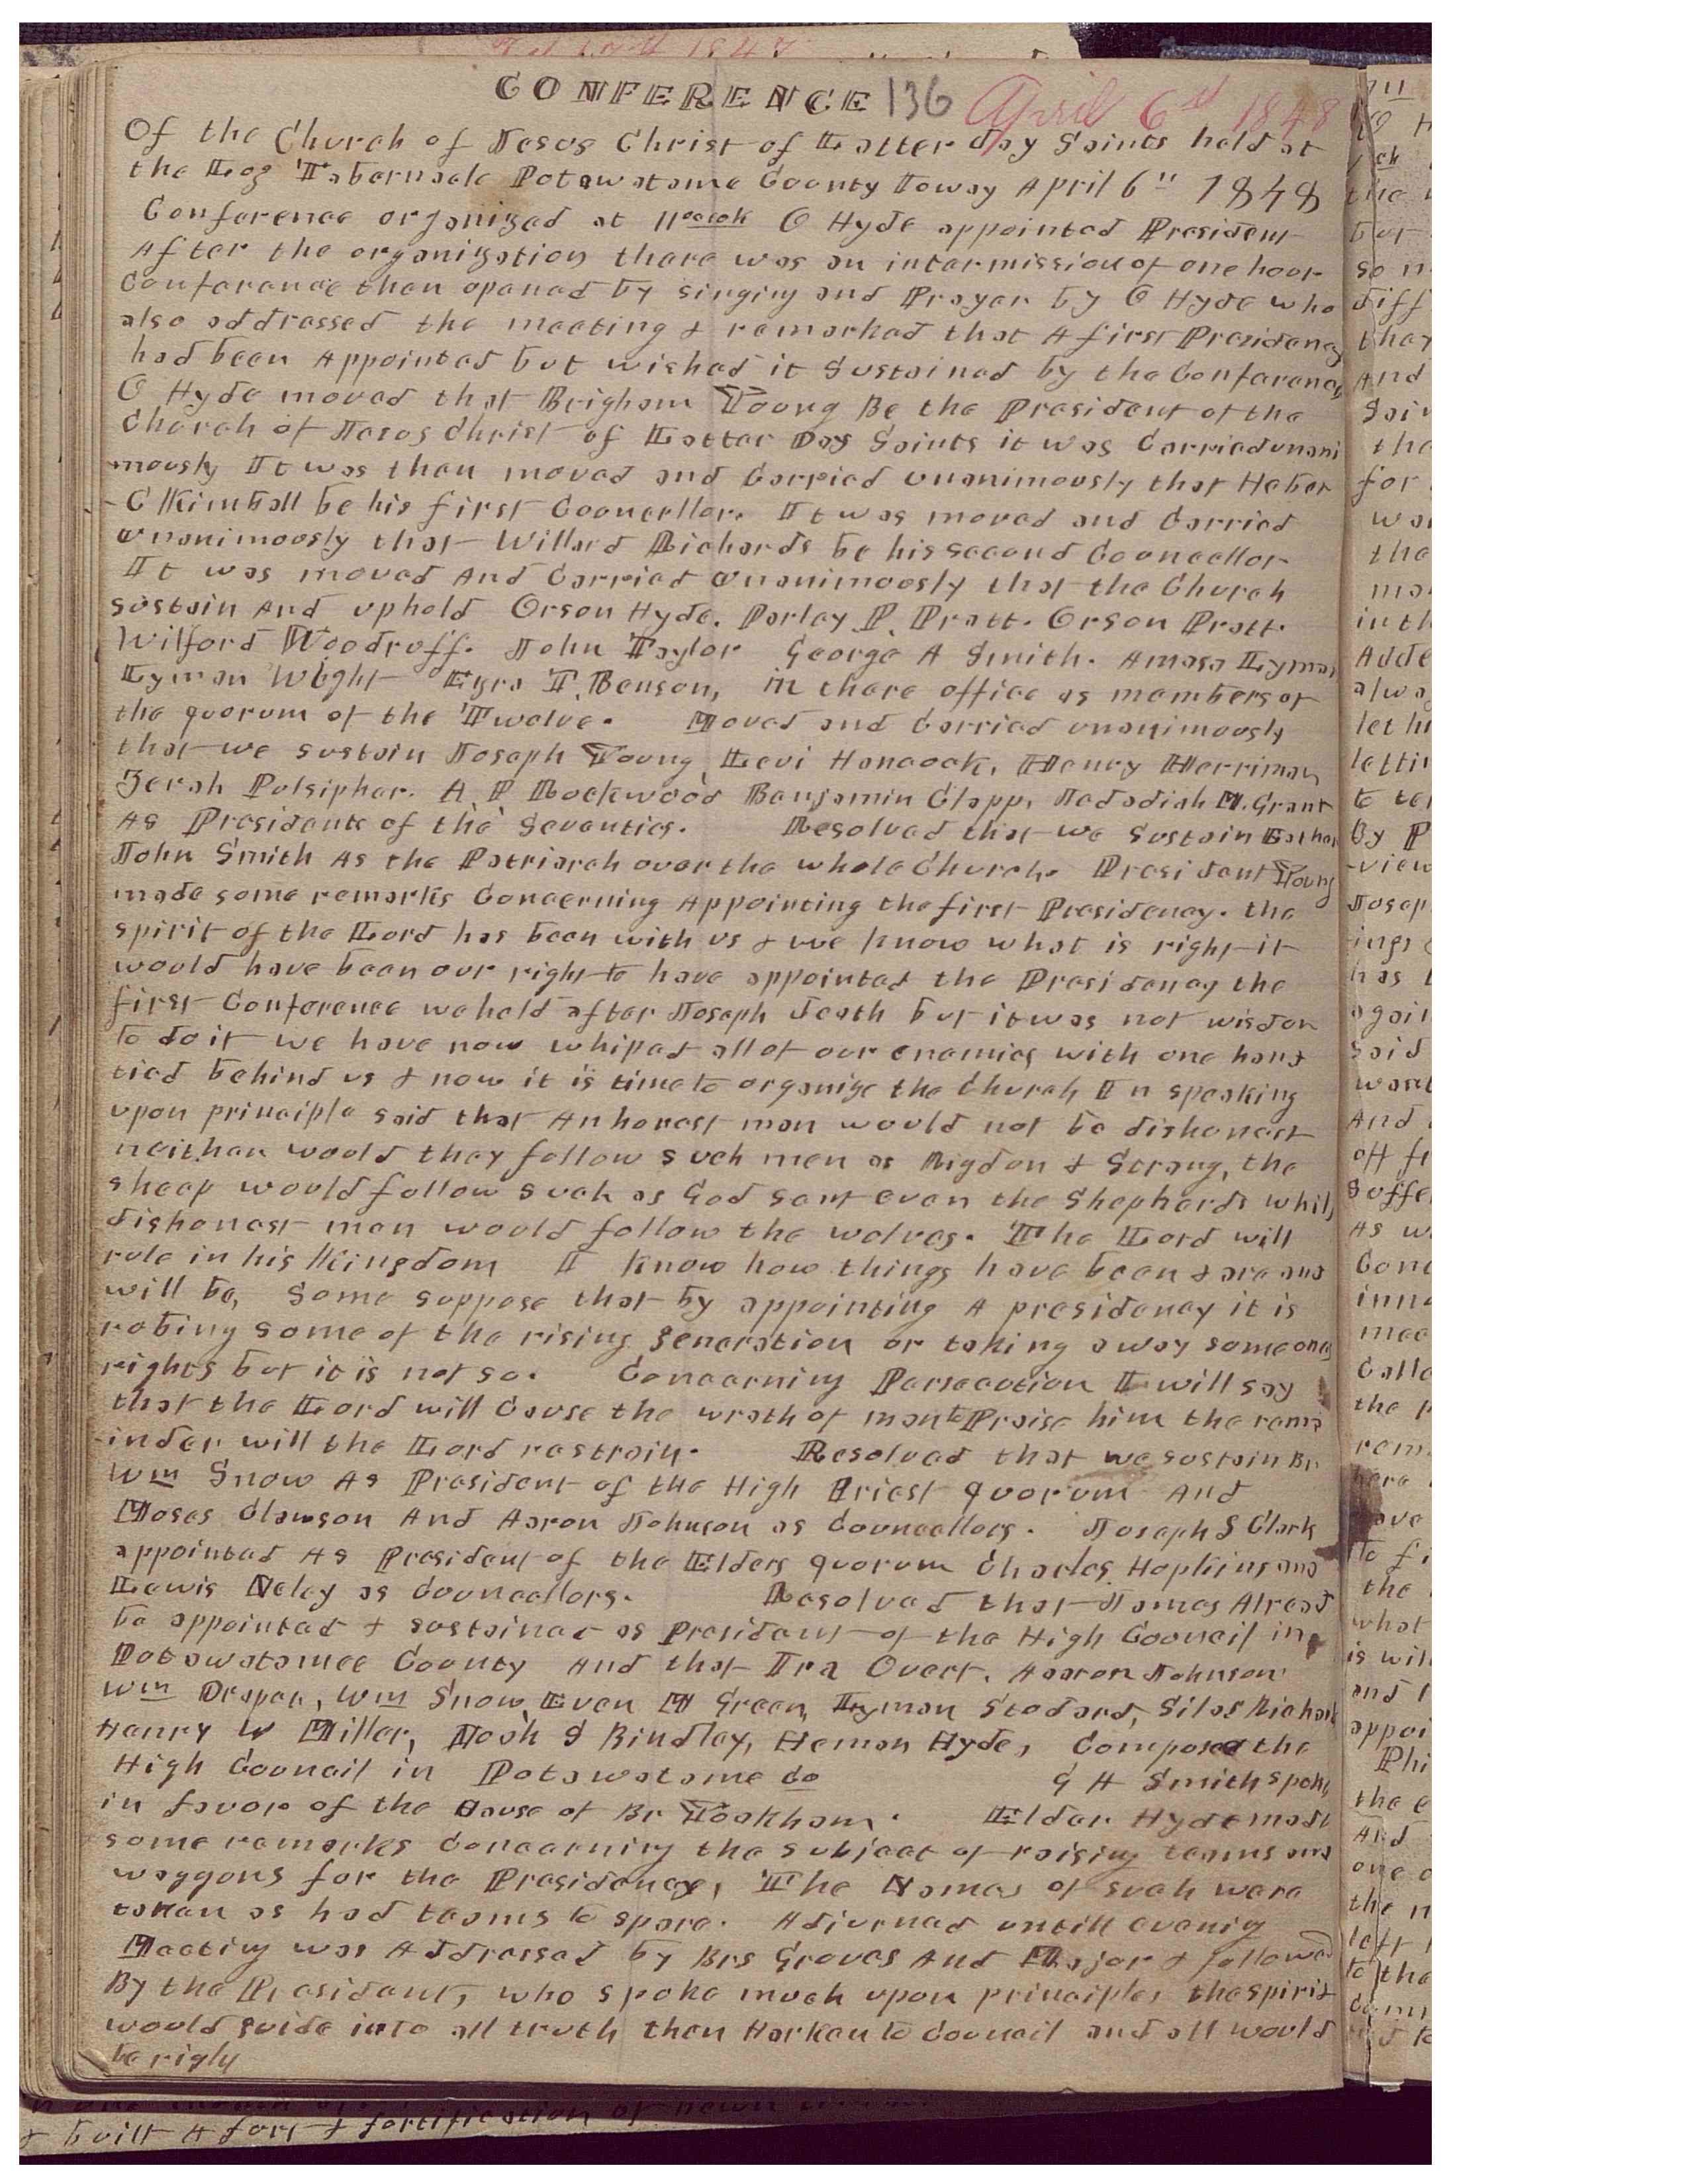 CONFERENCE 136 April 6st 1848
Of the Church of Jesus Christ of Latter day Saints held at
the Log Tabernacle Potawatame County Ioway April 6" 1848
Conference organized at 11 oclok O Hyde appointed President
After the organization there was an intermission of one hour
Conference then opened by singing and Prayer by O Hyde who
also addressed the meeting & remarked that A first Presidency
had been Appointed but wished it Sustained by the Conference
O Hyde moved that Brigham Young Be the President of the
Church of Jesus Christ of Latter Day Saints it was Carried unani
-mously It was then moved and Carried unanimously that Heber
-C Kimball be his first Councellor. It was moved and Carried
unanimously that Willard Richards be his second Councellor
It was moved And Carried unanimously that the Church
sustain And uphold Orson Hyde. Parley P. Pratt. Orson Pratt.
Wilford Woodruff. John Taylor George A Smith. Amasa Lyman
Lyman Wight Ezra T. Benson, in there office as members of
the quorum of the Twelve. Moved and Carried unanimously
that we sustain Joseph Young, Levi Hancock, Henry Herriman
Zerah Pulsiphar. A P Rockwood Benjamin Clapp, Jadadiah M. Grant
As Presidents of the Seventies. Resolved that we Sustain Father
John Smith As the Patriarch over the whole Church. President Young
made some remarks Concerning Appointing the first Presidency. the
spirit of the Lord has been with us & we know what is right it
would have been our right to have appointed the Presidency the
first Conference we held after Joseph death but it was not wisdom
to do it we have now whiped all of our enemies with one hand
tied behind us & now it is time to organize the Church In speaking
upon principle said that An honest man would not be dishonest
neither would they follow such men as Rigdon & Strang, the
sheep would follow such as God sent even the Shepherds whils
dishonest men would follow the wolves. The Lord will
rule in his Kingdom I know how things have been & are and
will be, Some suppose that by appointing A presidency it is
robing some of the rising generation or taking away someones
rights but it is not so. Concerning Persecution I will say
that the Lord will Cause the wrath of man to Praise him the rema
-inder will the Lord restrain. Resolved that we sustain Br
Wm Snow As President of the High Priest quorum And
Moses Clawson And Aaron Johnson as Councellors. Joseph S Clark
appointed As President of the Elders quorum Charles Hopkins and
Lewis Neley as Councellors. Resolved that James Alread
be appointed & sustained as President of the High Council in
Potawatamee County And that Ira Overt, Aaaron Johnson
Wm Draper, Wm Snow, Evan M Green, Lyman Stodard, Silas Richard
Henry W Miller, Noah S Bindley, Heman Hyde, Compose the
High Council in Potawatame Co G A Smith spoke
in favor of the Cause of Br Tookham. Elder Hyde made
some remarks Concerning the subject of raising teams and
waggons for the Presidency, The Names of such were
taken as had teams to spare. Adjurned untill evenig
Meeting was Addressed by Brs Groves And Major & followed
By the President, who spoke much upon principles the spirit
would guide into all truth then Harken to Council and all would
be right
& built A fort & fortification of